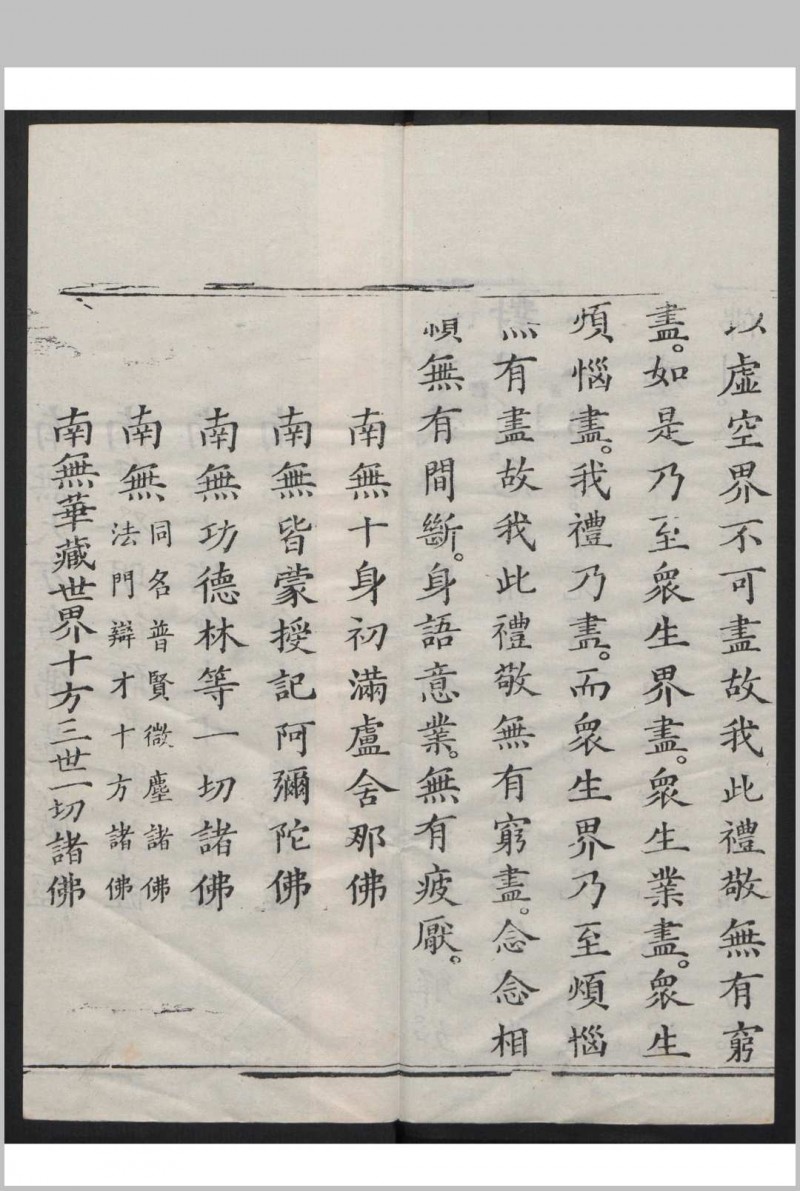 以虛空界不可盡故我此禮敬無有窮
盡。如是乃至衆生界盡。衆生業盡。衆生
煩惱盡。我禮乃盡。而衆生界乃至煩惱
無有盡故我此禮敬無有窮盡。念念相
續無有間斷。身語意業。無有疲厭。
南無十身初滿盧舍那佛
南無皆蒙授記阿彌陀佛
南無功德林等一切諸佛
南無同名普賢微塵諸佛
法門辯才十方諸佛
南無華藏世界十方三世一切諸佛